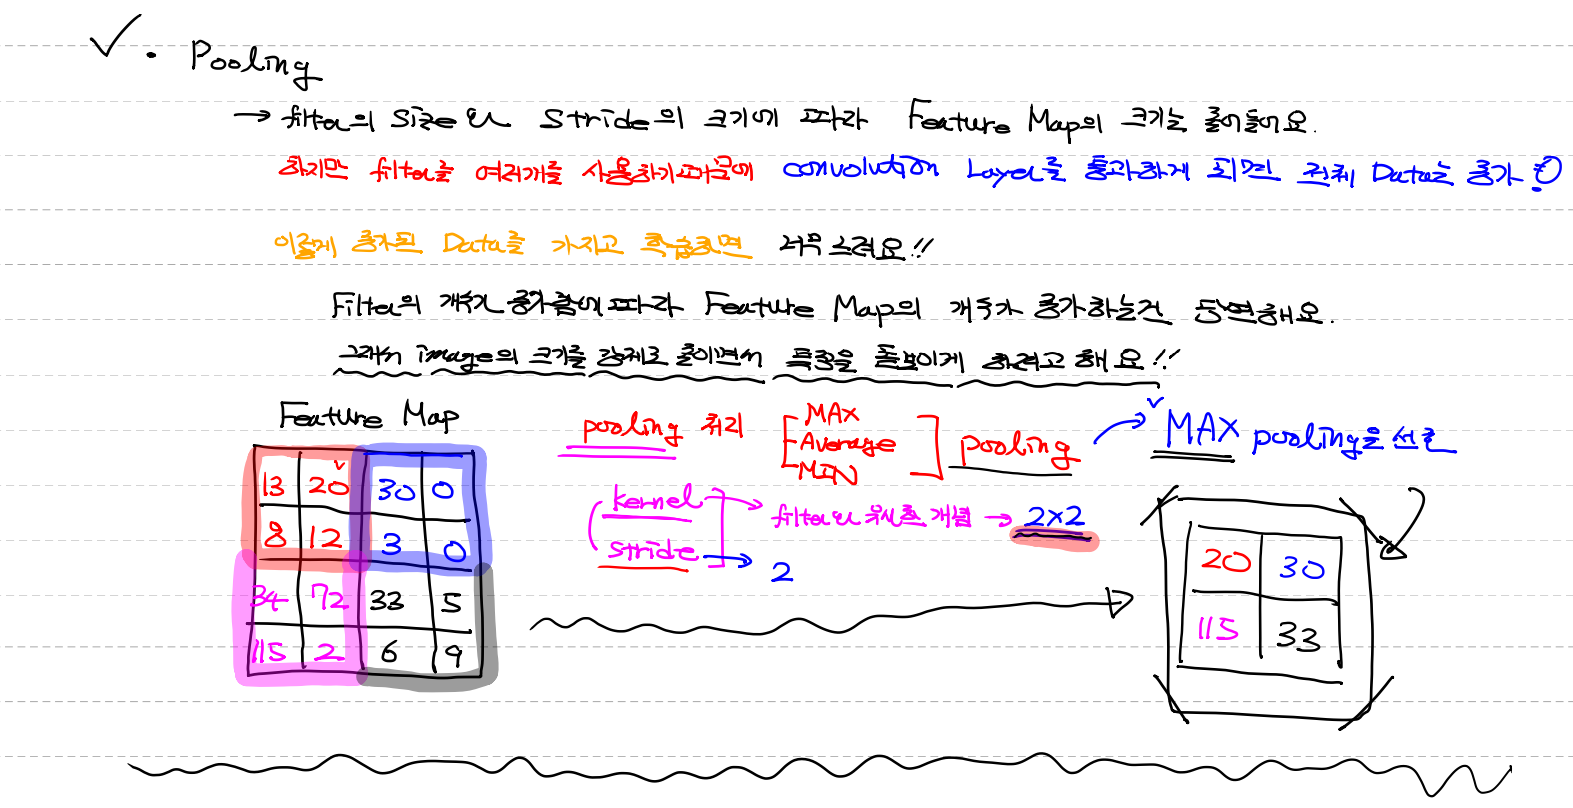 ✓ • Pooling
→ filter의 size와 Stride의 크기에 따라 Feature Map의 크기는 줄어들어요.
하지만 filter를 여러개를 사용하기때문에 convolution Layer를 통과하게 되면 전체 Data는 증가!
이렇게 증가된 Data를 가지고 학습하면 너무 느려요!!
Filter의 개수가 증가함에 따라 Feature Map의 개수가 증가하는건 당연해요.
그래서 image의 크기를 강제로 줄이면서 특징을 돋보이게 하려고 해요!!
Feature Map
pooling 처리
MAX
Average
MIN
pooling
→ MAX pooling을 선호
13 20 30 0
8 12 3 0
34 72 33 5
115 2 6 9
kernel → filter와 유사한 개념 → 2×2
stride → 2
20 30
115 33